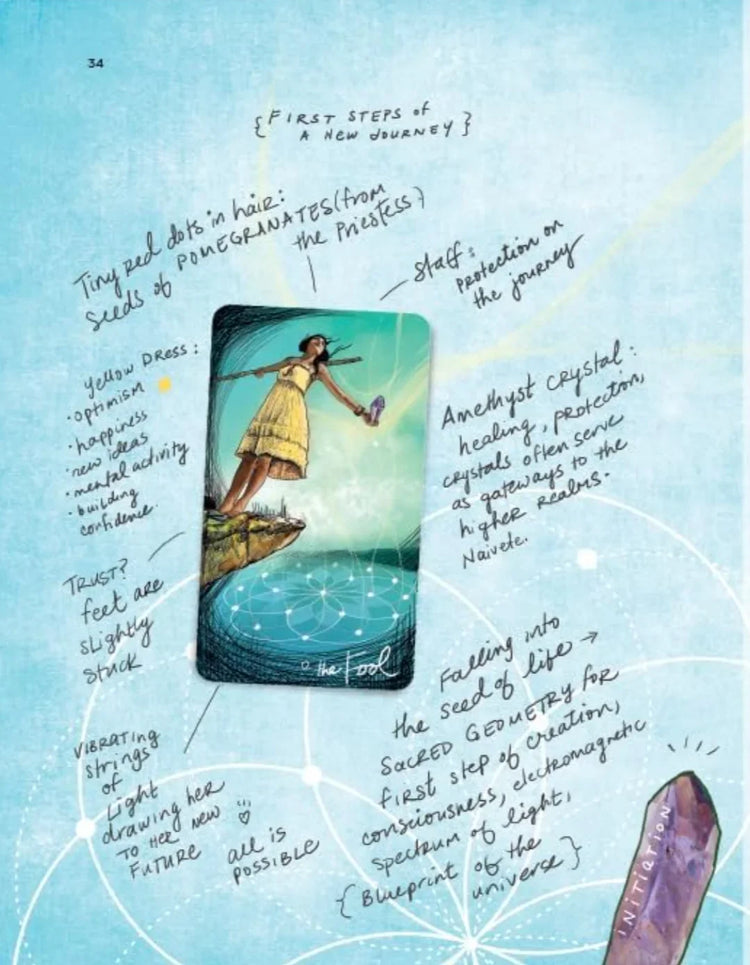 34
{FIRST STEPS of
A NEW JOURNEY}
Tiny red dots in hair:
Seeds of POMEGRANATES (from
the Priestess)
Staff:
Protection on
the journey
Yellow DRESS:
• optimism
• happiness
• new ideas
• mental activity
• building
confidence.
Amethyst crystal:
healing, protection,
crystals often serve
as gateways to the
higher realms.
Naivete.
TRUST?
feet are
slightly
stuck
0 the Fool
Falling into
the seed of life →
SACRED GEOMETRY FOR
first step of creation,
consciousness, electromagnetic
spectrum of light,
{Blueprint of the
universe}
VIBRATING
strings
of
Light
drawing her
TO HER NEW
FUTURE
all is
POSSIBLE
INITIATION